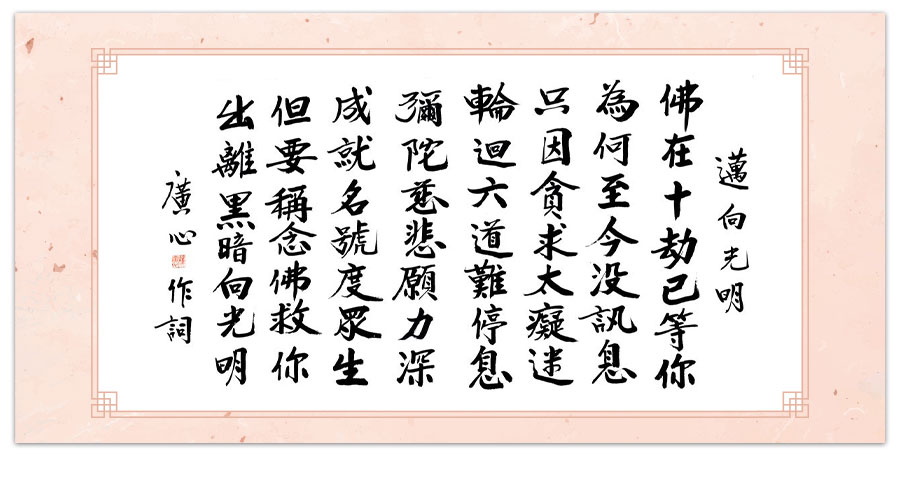 邁向光明
佛在十劫已等你
為何至今没訊息
只因貪求太癡迷
輪迴六道難停息
彌陀慈悲願力深
成就名號度眾生
但要稱念佛救你
出離黑暗向光明
廣心作詞